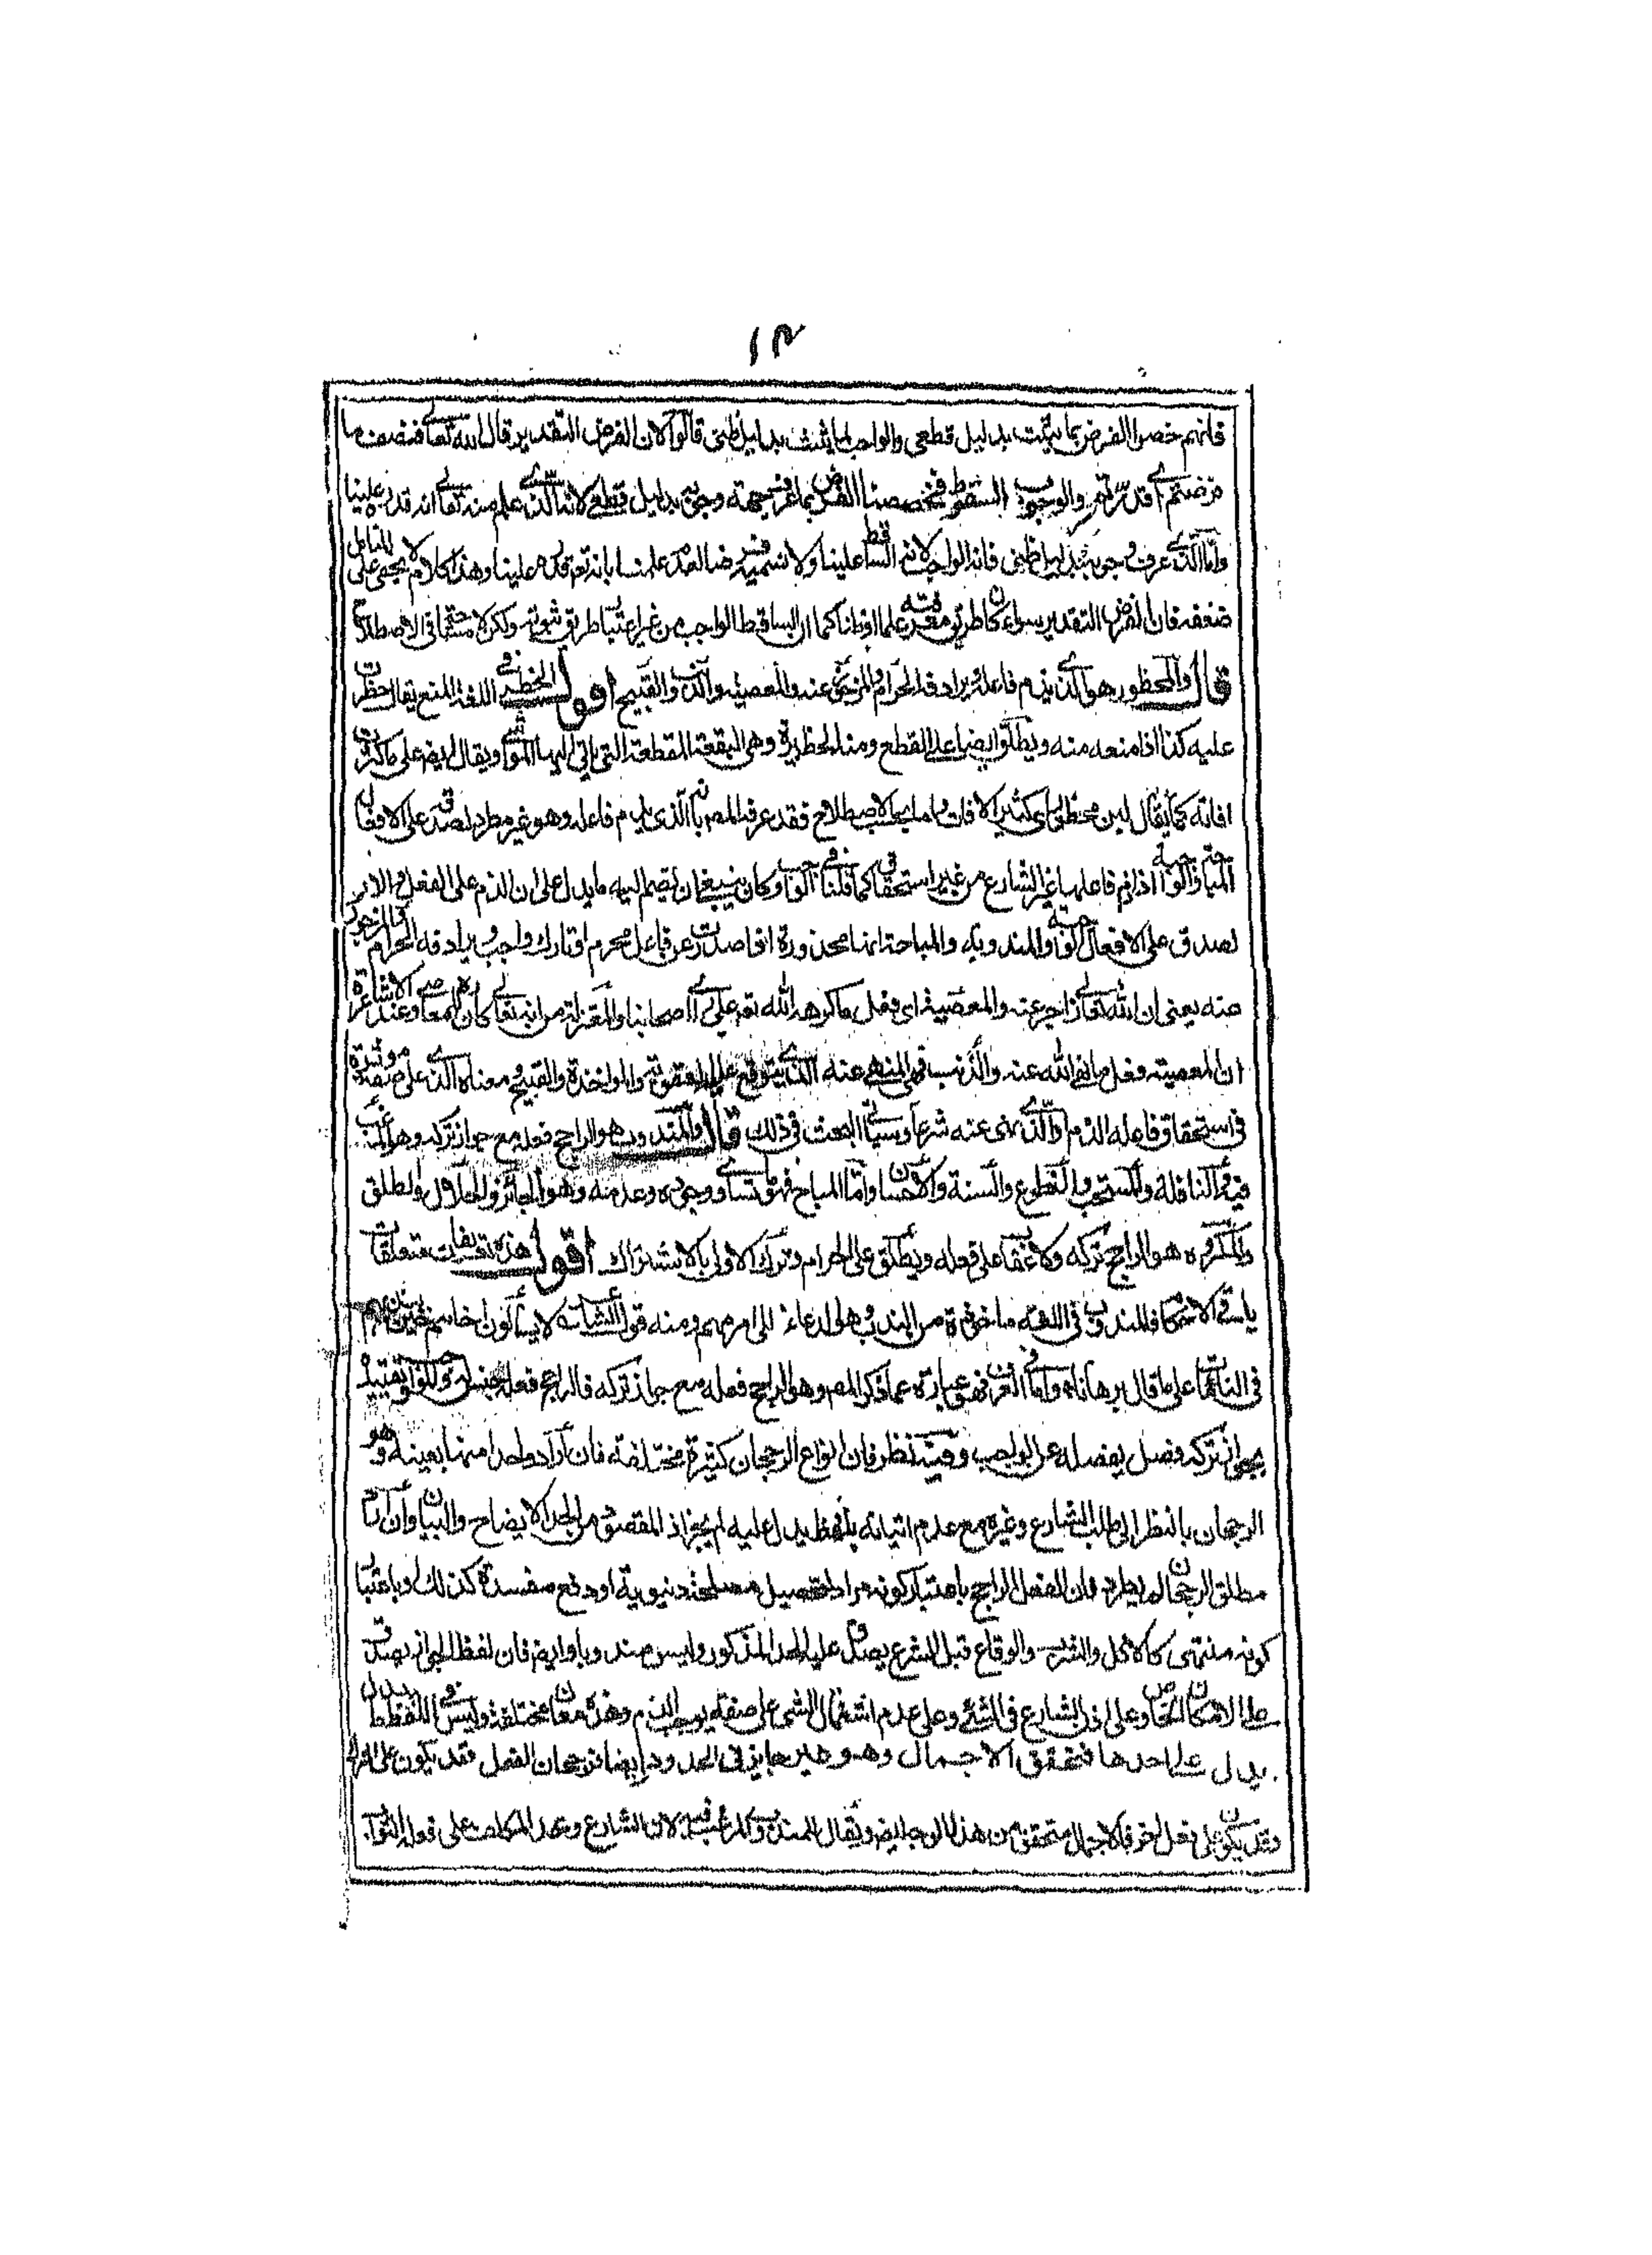 ١٣
فانهم خصوا الفرض بما يثبت بدليل قطعي والواجب لما يثبت بدليل ظني قالوا لان الفرض التقدير قال الله تعالى فنصف ما
فرضتم اي قدرتم والوجوب السقوط فخصصنا الفرض بما عرف وجوبه بدليل قطعي لانه الذي علم منه تعالى انه قدره علينا
واما الذي عرف وجوبه بدليل ظني فانه الواجب لانه الساقط علينا ولا نسميه فرضا لعدم علمنا بانه تعم قدره علينا وهذا كلام لا يخفى على المتامل
ضعفه فان الفرض التقدير سواء كان طريق معرفته علما او ظنا كما ان الساقط الواجب من غير اعتبار طريق ثبوته ولكن لا مشاحة في الاصطلاح
قال والمحظور هو الذي يذم فاعله ويرادفه الحرام والمزجور عنه والمعصية والذنب والقبيح اقول الحظر في اللغة المنع يقال حظرت
عليه كذا اذا منعه منه ويطلق ايضا على القطع ومنه الحظيرة وهي البقعة المقطعة التي ياتي اليها المواشي ويقال ايضم على ما كثرت
افاته كما يقال لبن محظور اي كثير الافات واما بحسب الاصطلاح فقد عرفه المصر بانه الذي يذم فاعله وهو غير مطرد لصدقه على الافعال
المباحة والواجبة اذا ذم فاعلها غير الشارع من غير استحقاق كما قلنا في الواجب وكان ينبغي ان يضم اليه ما يدل على ان الذم على الفعل والا
لصدق على الافعال الواجبة والمندوبة والمباحة انها محذورة اذا صدرت عن فاعل محرم او تارك واجب ويرادفه الحرام والمزجور
عنه يعني ان الله تعالى زاجر عنه والمعصية اي فعل ما كرهه الله تعم على راي اصحابنا والمعتزلة من انه تعالى كاره للمعاصي وعند الاشاعرة
ان المعصية فعل ما نهى الله عنه والذنب وهو المنهي عنه الذي يتوقع عليه العقوبة والمواخذة والقبيح ومعناه الذي على صفة موثرة
في استحقاق فاعله الذم او الذي نهى عنه شرعا وسياتي البحث في ذلك قال والمندوب هو الراجح فعله مع جواز تركه وهو المرغب
فيه والنافلة والمستحب والتطوع والسنة والاحسان واما المباح فهو ما تساوى وجوده وعدمه وهو الجائز والحلال والمطلق
والمكروه هو الراجح تركه ولا عقاب على فعله ويطلق على الحرام وترك الاولى بالاشتراك اقول هذه تعريفات متعلقات
باقي الاحكام فالمندوب في اللغة ماخوذ من الندب وهو الدعاء الى امر مهم ومنه قول الشاعر لا يسألون اخاهم حين يندبهم
في النائبات على ما قال برهانا واما في العرف فهو عبارة عما ذكره المصر وهو الراجح فعله مع جواز تركه فالراجح فعله جنس له وللواجب وتقييده
بجواز تركه فصل يفصله عن الواجب وفيه نظر فان انواع الرجحان كثيرة مختلفة فان اراد واحدا منها بعينه وهو
الرجحان بالنظر الى طلب الشارع وغيره مع عدم اتيانه بلفظ يدل عليه لم يجز اذ المقصود من الحد الايضاح والبيان وان اراد
مطلق الرجحان لم يطرد فان الفعل الراجح باعتبار كونه مرادا لتحصيل مصلحة دنيوية او دفع مفسدة كذلك او باعتبار
كونه مشتهى كالاكل والشرب والوقاع قبل الشرع يصدق عليه الحد المذكور وليس مندوبا وايضم فان لفظ الجواز يصدق
على الامكان الخاص وعلى اذن الشارع في الشئ وعلى عدم اشتمال الشئ على صفة يوجب الذم وهذه معان مختلفة وليس في اللفظ ما يدل
يدل على احدها فتحقق الاجمال وهو غير جايز في الحدود وايضا فرجحان الفعل قد يكون على الترك
وقد يكون على فعل اخر فالاجمال متحقق من هذا الوجه ايضم ويقال للمندوب المرغب فيه لان الشارع وعد المكلف على فعله الثواب